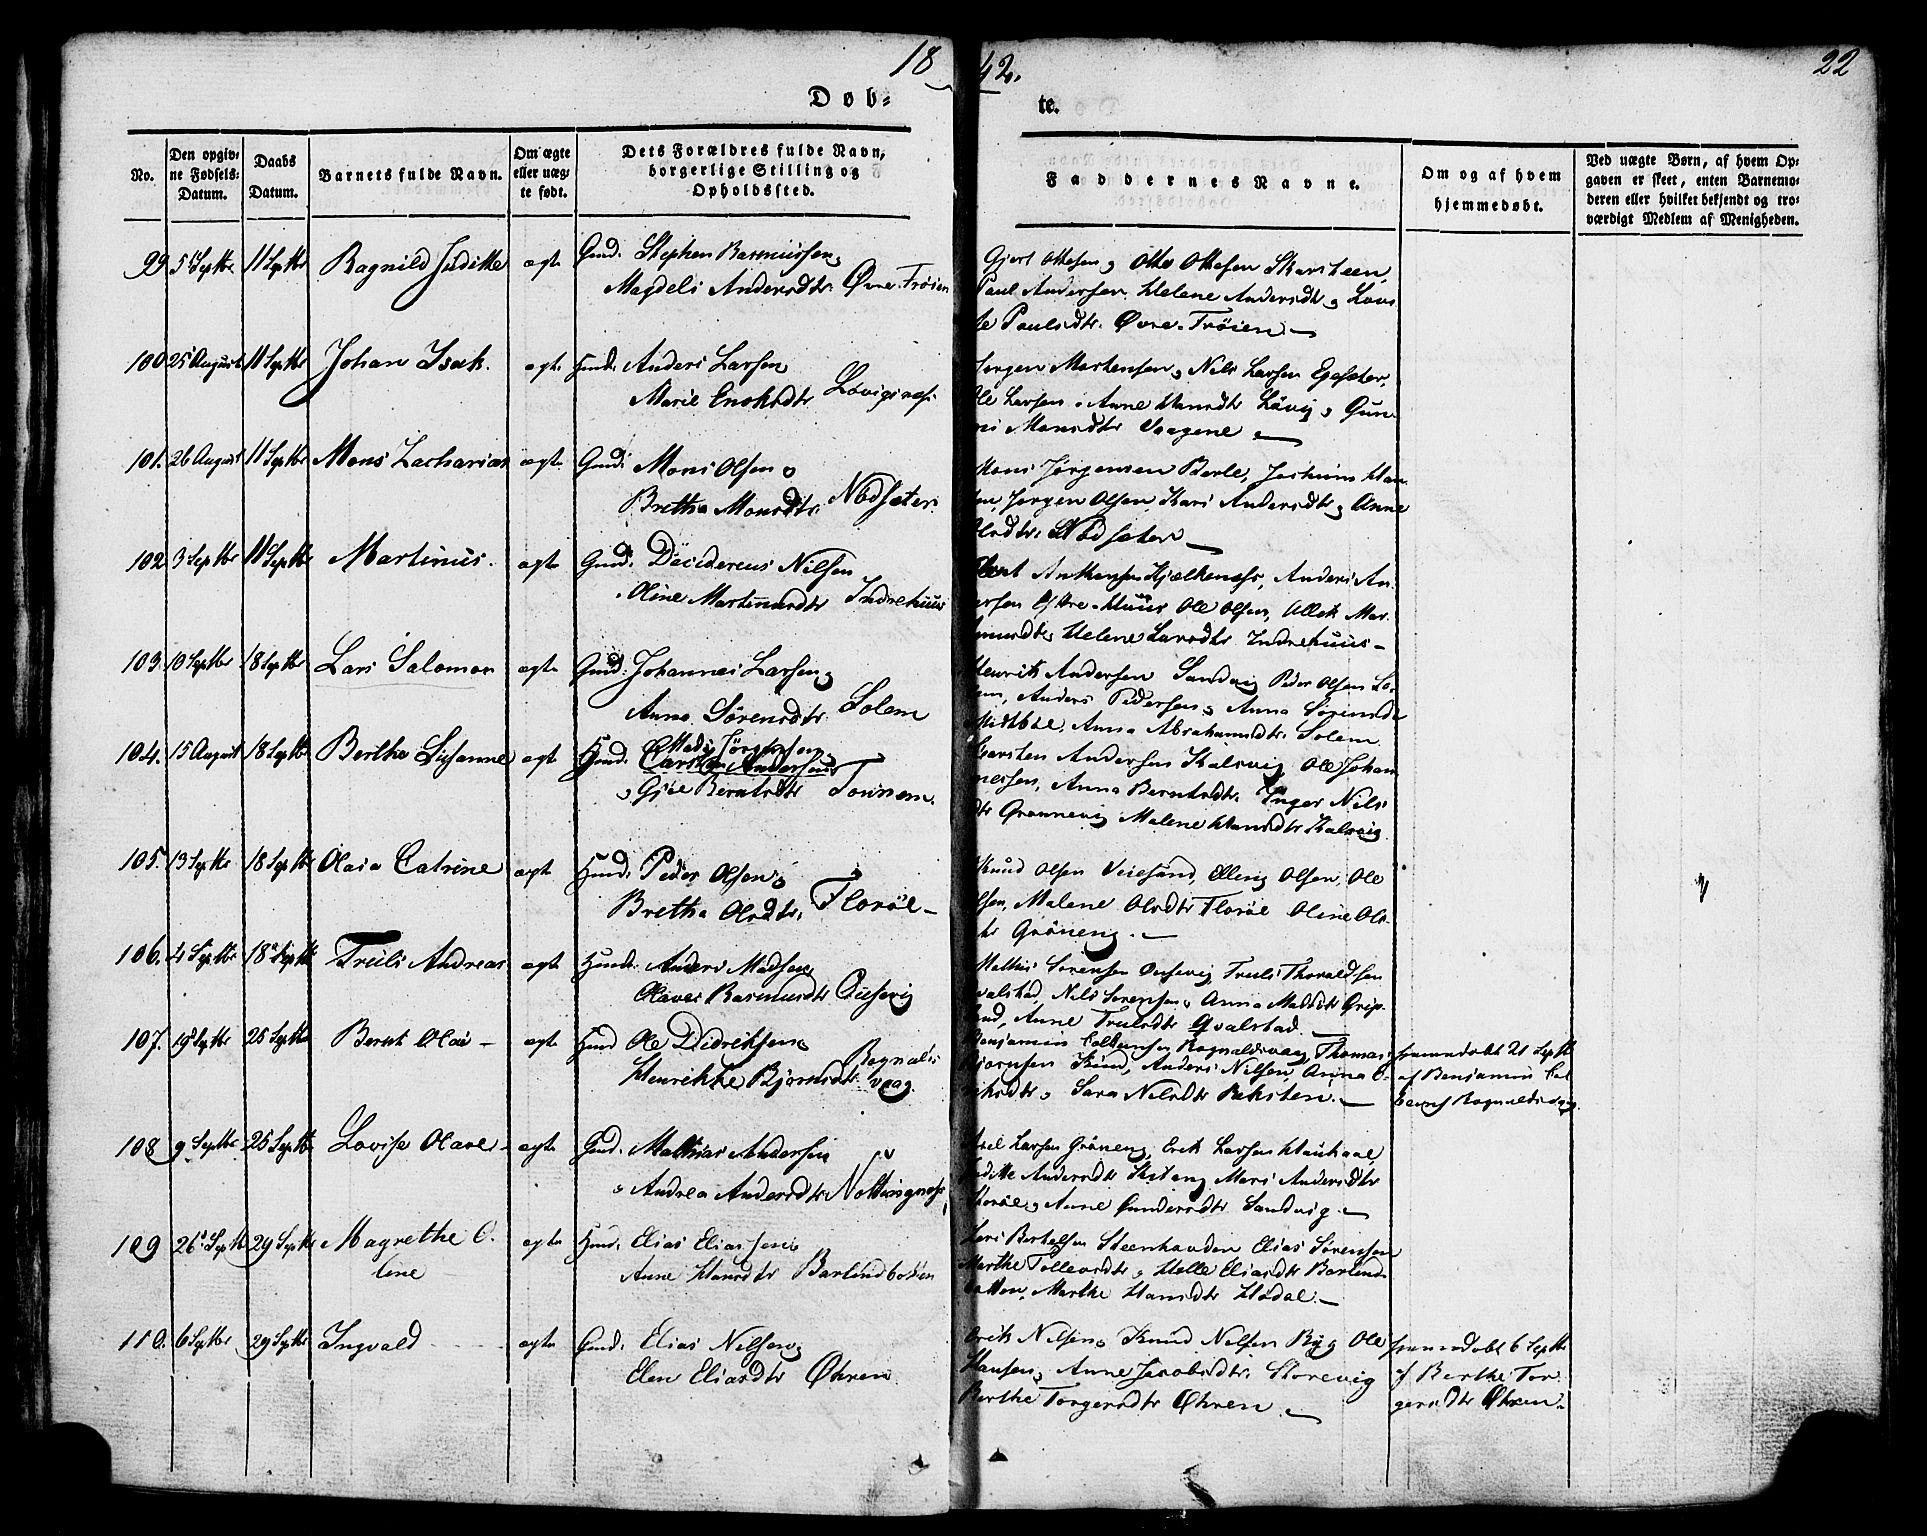 1842.
22
Døb-
te.
No.
Den opgiv-
ne Fødsels-
Datum.
Daabs
Datum.
Barnets fulde Navn.
Om ægte
eller uæg-
te født.
Dets Forældres fulde Navn,
borgerlige Stilling og
Opholdssted.
Faddernes Navne.
Om og af hvem
hjemmedøbt.
Ved uægte Børn, af hvem Op-
gaven er skeet, enten Barnemo-
deren eller hvilket bekjendt og tro-
værdigt Medlem af Menigheden.
99 5 Septbr 11 Septbr Ragnild Juditte ægte Gmd. Stephen Rasmussen,
Magdeli Andersdtr. Øvre Trøien
Gjert Ottesen, Otto Ottesen Skarsteen,
Paul Andersen, Helene Andersdtr, Lovi-
se Paulsdtr. Øvre-Trøien. —
100 25 August 11 Septbr Johan Isak. ægte Huusm. Anders Larsen
Marie Enoksdtr Løvignæs.
Jørgen Mortensen, Nils Larsen Egesæter,
Ole Larsen, Anne Hansdtr Løvig, Gun-
ni Monsdtr Vaagene —
101. 26 August 11 Septbr Mons Zacharias ægte Gmd. Mons Olsen,
Brethe Monsdtr. Nødsæter.
Mons Jørgensen Berle, Jochum Han-
sen, Jørgen Olsen, Kari Andersdtr, Anne
Olsdtr. Nødsæter —
102 3 Septbr 11 Septbr Martinus. ægte Gmd. Deciderius Nilsen
Oline Martinusdtr Indrehuus
Anthonsen Hjelkenæs, Anders An-
dersen Østre-Huus Ole Olsen, Mar-
tinusdtr, Helene Larsdtr. Indrehuus —
103. 10 Septbr 18 Septbr Lars Salomon ægte Gmd. Johannes Larsen,
Anna Sørensdtr. Solem
Henrik Andersen Sandvig Peder Olsen So-
lem, Anders Pedersen, Anna Sørensdtr
Midtbøe, Anna Abrahamsdtr. Solem.
104. 15 August 18 Septbr Berthe Susanne ægte Huusm. Mads Jørgensen
Carsten Andersen
, Gjøe Berntsdtr Tonnem.
Carsten Andersen Kalsvig, Ole Johan-
nessen, Anna Berntsdtr. Inger Nils-
dtr Grønnevig Malene Hansdtr Kalsvig
105. 13 Septbr 18 Septbr Olava Catrine ægte Huusm. Peder Olsen,
Bretha Olsdtr, Florøe —
Knud Olsen Veiesund, Elling Olsen, Ole
Olsen, Malene Olsdtr Florøe Oline Ols-
dtr Grøneng. —
106. 4 Septbr 18 Septbr Truls Andreas ægte Huusm. Anders Madsen,
Olave Rasmusdtr
Mathis Sørensen Truls Thoraldsen
Qvalstad, Nils Sørensen, Anna Madsdtr
Anne Trulsdtr Qvalstad. —
107. 19 Septbr 25 Septbr Bernt Olai — ægte Huusm Ole Didriksen,
Henrikke Bjørnsdtr Ragnalds-
vaag.
Benjamin Colbensen Ragnaldsvaag, Thomas
Bjørnsen Kind, Anders Nilsen, Anna E-
riksdtr, Sara Nilsdtr Raksten. —
hjemmedøbt 21 Septbr
af Benjamin Col-
bensen Ragnaldsvaag.
108 9 Septbr 25 Septbr Lovise Olave — ægte Gmd. Mathias Andersen
, Andrea Andersdtr Nottingnæs
Axel Larsen Grøneng, Erik Larsen Haukaae,
Juditte Andersdtr Steeng Mari Andersdtr
Florøe, Anne Gundersdtr Sandvig. —
109 26 Septbr 29 Septbr Magrethe O-
line ægte Huusm. Elias Eliassen,
Anne Hansdtr Barlindbotten
Lars Bertelsen Steenhovden Elias Sørensen
Marthe Tollevsdtr, Helle Eliasdtr Barlind-
botten, Marthe Hansdtr Hødal. —
110. 6 Septbr 29 Septbr Ingvald ægte Gmd. Elias Nilsen,
Elen Eliasdtr Øhren
Erik Nilsen, Knud Nilsen Ryg Ole
Hansen, Anne Jacobsdtr. Storevig
Berthe Torgersdtr Øhren. —
hjemmedøbt 6 Septbr
af Berthe Tor-
gersdtr Øhren.